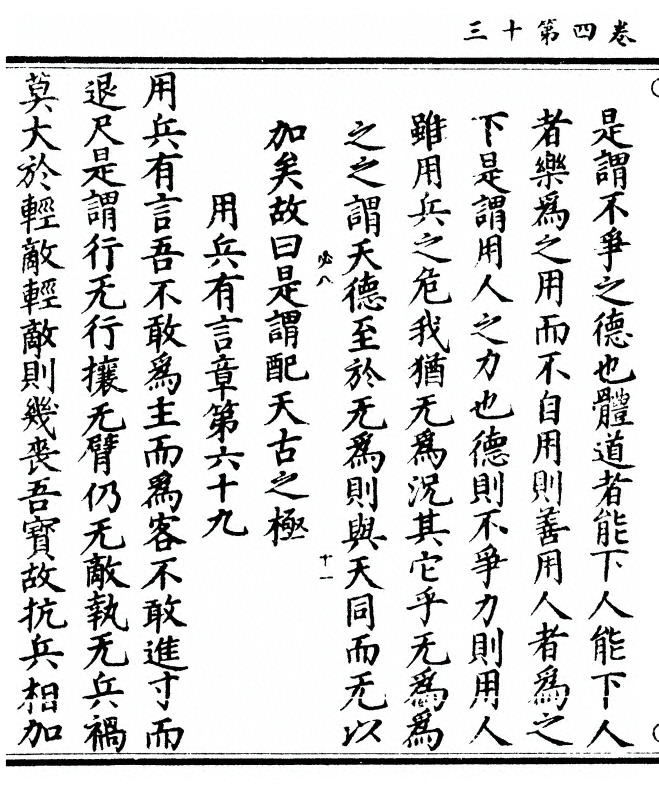 卷四第十三
是謂不爭之德也體道者能下人能下人
者樂爲之用而不自用則善用人者爲之
下是謂用人之力也德則不爭力則用人
雖用兵之危我猶无爲況其它乎无爲爲
之之謂天德至於无爲則與天同而无以
必八
十一
加矣故曰是謂配天古之極
用兵有言章第六十九
用兵有言吾不敢爲主而爲客不敢進寸而
退尺是謂行无行攘无臂仍无敵執无兵禍
莫大於輕敵輕敵則幾喪吾寶故抗兵相加